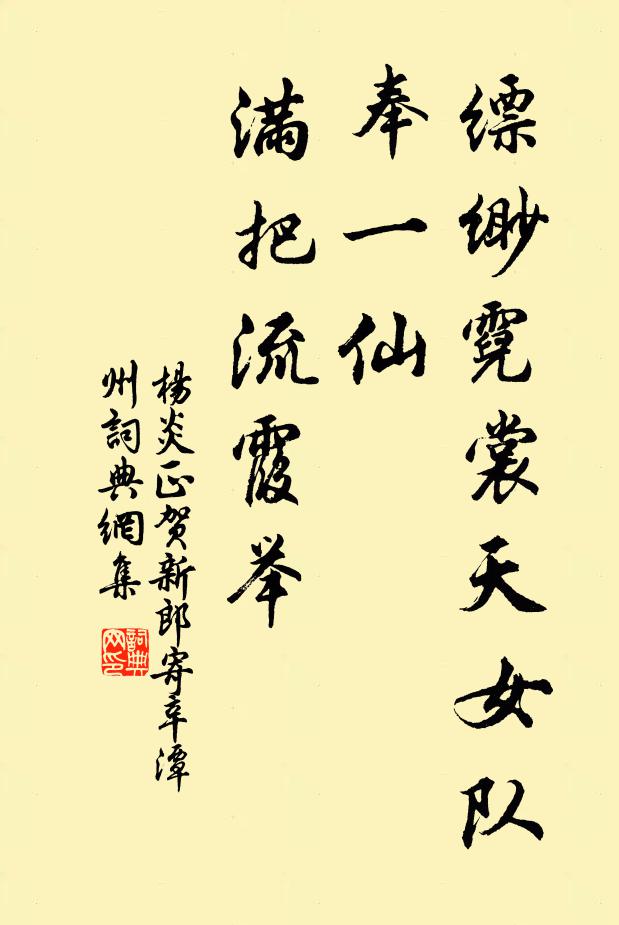 缥缈霓裳天女队
奉一仙
满把流霞举
楊炎正贺新郎寄辛潭
州詞典網集
詞典网印